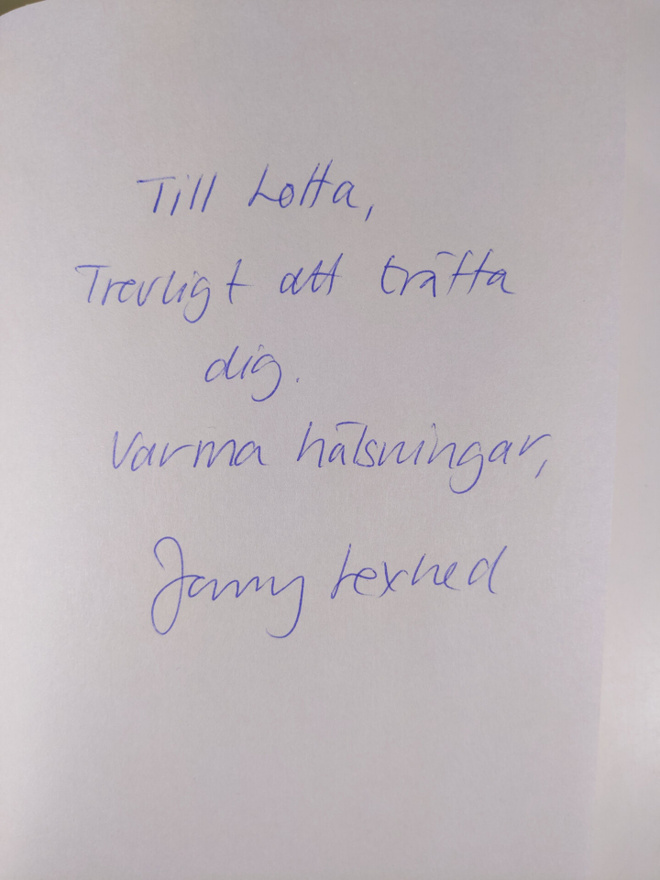 Till Lotta,
Trevligt att träffa
dig.
Varma hälsningar,
Jonny Lexhed